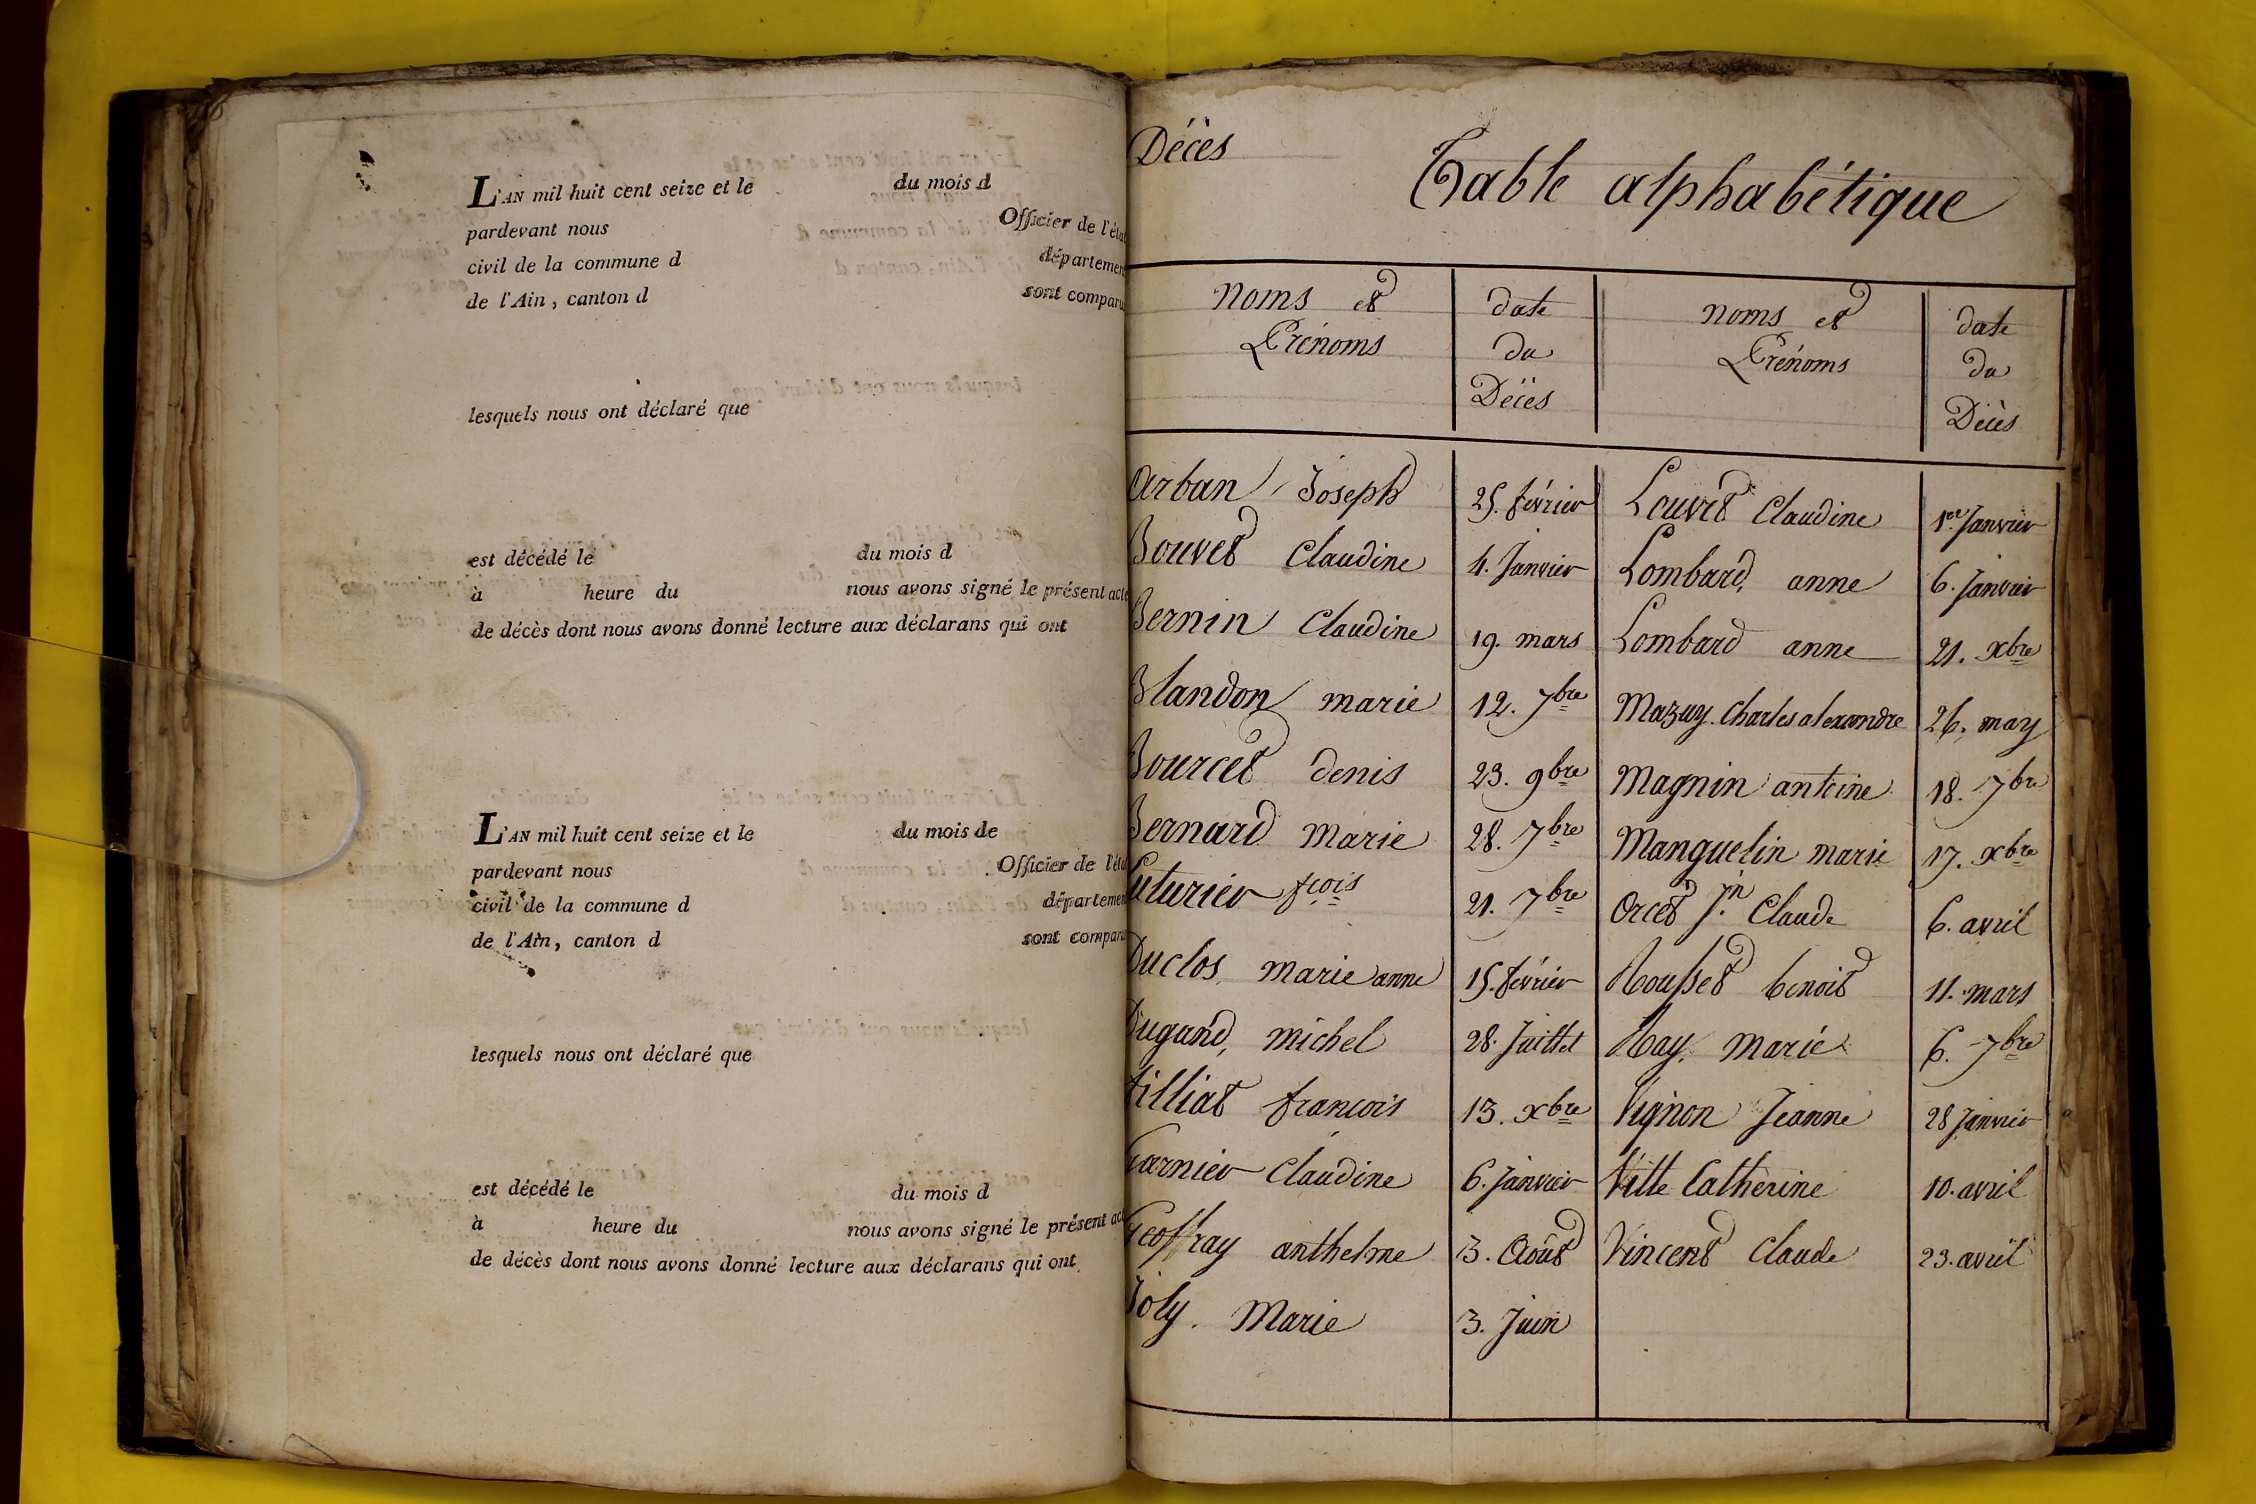 L'AN mil huit cent seize et le du mois d
pardevant nous Officier de l'éta
civil de la commune d départemen
de l'Ain, canton d sont comparu
lesquels nous ont déclaré que
est décédé le du mois d
à heure du nous avons signé le présent acte
de décès dont nous avons donné lecture aux déclarans qui ont
L'AN mil huit cent seize et le du mois de
pardevant nous Officier de l'éta
civil de la commune d départemen
de l'Ain, canton d sont comparu
lesquels nous ont déclaré que
est décédé le du mois d
à heure du nous avons signé le présent act
de décès dont nous avons donné lecture aux déclarans qui ont
Décès Table alphabétique
noms et date noms et date
Prénoms du Prénoms du
Décès Décès
Arban Joseph 25. février Louvet Claudine 1er Janvier
Bouvet Claudine 4. Janvier Lombard, anne 6. Janvier
Bernin Claudine 19. mars Lombard anne 21. xbre
Blandon marie 12. 7bre Mazuy. Charles alexandre 26. may
Bourcet denis 23. 9bre Magnin antoine 18. 7bre
Bernard marie 28. 7bre Manguelin marie 17. xbre
Cuturier fçois 21. 7bre Orcet Jn Claude 6. avril
Duclos marie anne 15. février Rousset benoit 11. mars
Dugand, michel 28. Juillet Ray. Marie 6. 7bre
filliat françois 13. xbre Vignon Jeanne 28 Janvier
Garnier Claudine 6. Janvier Ville Catherine 10. avril
Geoffray anthelme 3. Août Vincent Claude 23. avril
Joly. Marie 3. Juin